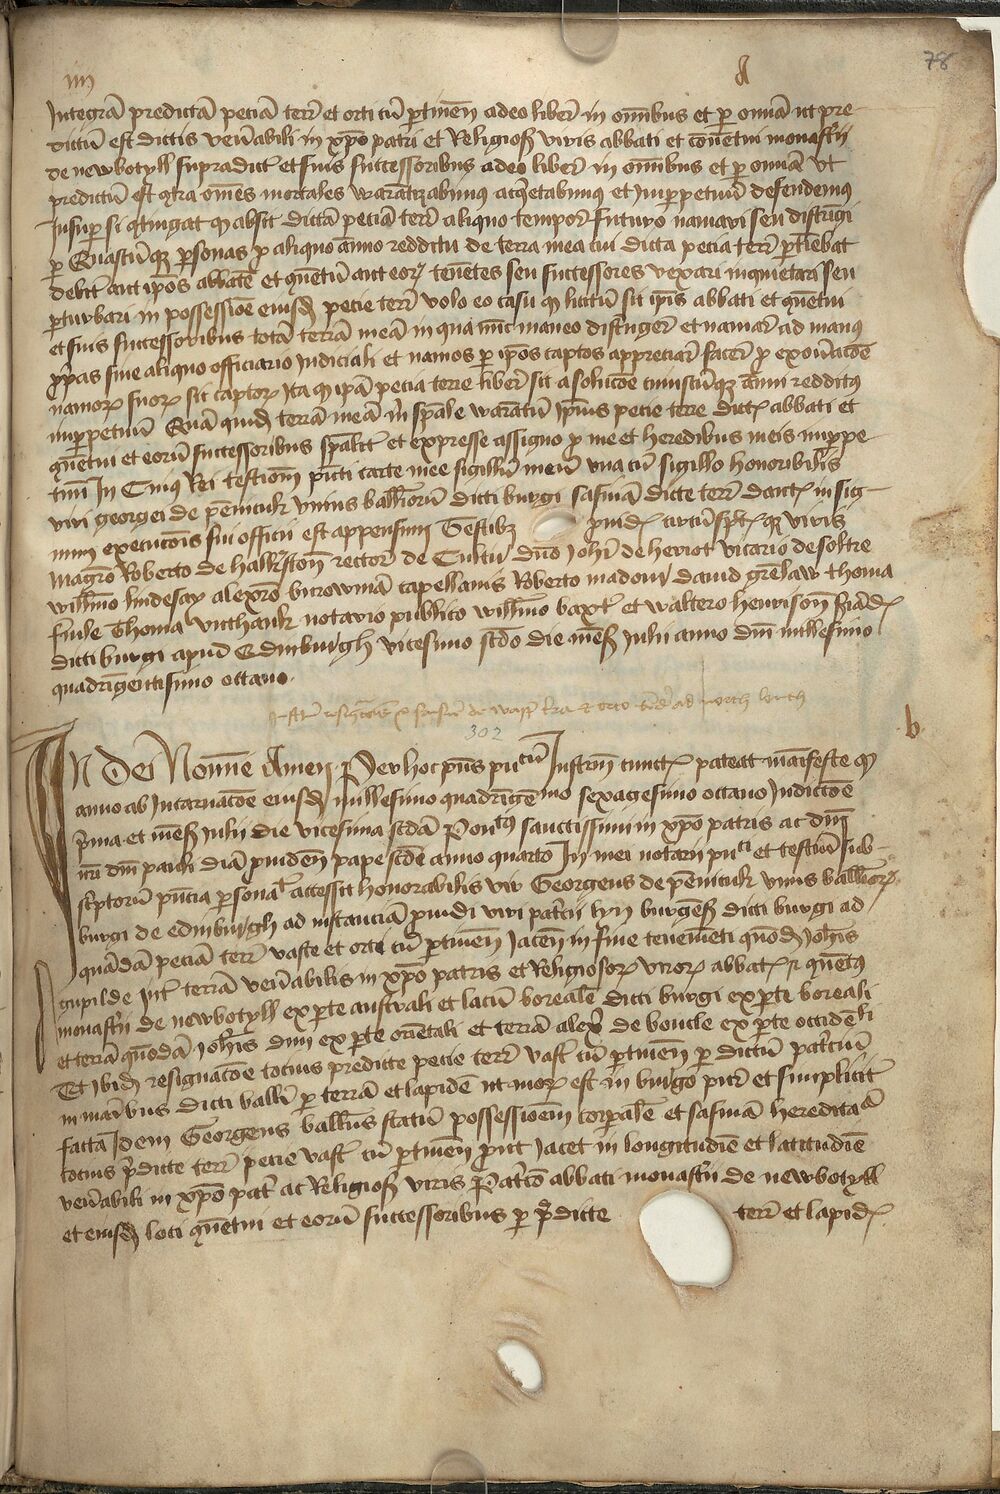 78
iiij
A
Integrā predictā peciā terr̄ et orti cū ꝑtineñ adeo liber̄ in om̄ibus et ꝑ omnia ut pre-
dictū est dictis ven̄abili in xp̄o patri et Religioß viris abbati et conuentui monast̄ii
de newbotyll supradict̄ et suis successoribus adeo liber̄ in om̄ibus et ꝑ omnia ut
predictū est qtra om̄es mortales warātizabimus acq̄etabimus et Inꝑpetuū defendemus
Insuꝑ si qtingat qđ absit dictā peciā terr̄ aliquo tempor̄ futuro namari seu distrīgi
ꝑ quascūqꝫ ꝑsonas ꝓ aliquo anno redditu de terra mea cui dicta pecia terr̄ ꝑtinebat
debit̄ aut ip̄os abbatē et qūetū aut eoꝝ tenētes seu successores vexari inquietari seu
ꝑturbari in possessiōe eiusđ pecie terr̄ volo eo casu qđ licitū sit ip̄is abbati et qūetui
et suis successoribus totā terrā meā in qua nūc maneo distrīger̄ et namar̄ ad manus
ꝓprias sine aliquo officiario Iudiciali et namos ꝑ ip̄os captos appreciari facer̄ ꝓ exoñacōe
namoꝝ suoꝝ sic captoꝝ Ita qđ ip̄a pecia terre liber̄ sit a solucōe cuiuscūqꝫ anni redditus
inꝑpetuū Quā quidē terrā meā in sp̄ale warātū ip̄ius pecie terre dict̄ abbati et
qūetui et eorū successoribus sp̄alit̄ et expresse assigno ꝓ me et heredibus meis inꝑpe-
tuū In Cuiꝰ Rei testioīm pn̄ti carte mee sigillū meū vna cū sigillo honorabilis
viri georgei de pēnicuk vnius ballīorū dicti burgi sasinā dicte terr̄ dant̄ in sig-
num execucōis sui officii est appensum Testibꝫ ꝓuidꝭ circūsp̄tꝭ qꝫ viris
Magr̄o Roberto de halkerstoñ rector̄ de Cultir̄ dn̄o Joh̄i de heriot vicario de soltre
will̄mo lindesay alexr̄o burowmā capellanis Roberto madour dauid grēlaw thoma
Thoma vnthank notario publico will̄mo baxt̄ et waltero henrisoñ
dicti burgi apud Edinburgh vicesimo scd̄o die mēß Julii anno dn̄i millesimo
quadrigentisimo octauo
302
b
In Dei Nomine Amen Per hoc pn̄s pu^cū Instrm̄ cunctꝭ pateat maīfeste qđ
anno ab Incarnacōe eiusdē millesimo quadringē^mo sexagesimo octauo Indictōe
p̄ma et mēß Julii die vicesima scd̄a Pon^tꝰ sanctissimi in xp̄o patris ac dn̄i
nr̄i dn̄i pauli diā ꝓuidēn pape scd̄i anno quarto In mei notarii pu^ci et testiū sub-
scptorū pn̄cia ꝑsonal̄ accessit honorabilis vir Georgeus de pēnicuk vnus balliorꝝ
burgi de edinburgh ad instanciā ꝓuidi viri patricii lyn burgēß dicti burgi ad
quādā peciā terr̄ vaste et orti cū ꝑtineñ Jaceñ in fine tenemēti quōdā Joh̄is
gupilde int̄ terrā ven̄abilis in xp̄o patris et Religiosoꝝ viroꝝ abbatꝭ et qūetꝰ
monast̄ii de newbotyll ex ꝑte australi et lacū borealē dicti burgi ex ꝑte boreali
et terrā quōdā Joh̄is dun ex ꝑte oriētali et terrā alexr̄i de boncle ex ꝑte occidē^li
Et Ibidē resignacōe tocius predicte pecie terr̄ vast̄ cū ꝑtineñ ꝑ dictū patriciū
in maībus dicti balliui ꝑ terrā et lapidē ut moꝝ est in burgo pur̄ et simplicit̄
facta Idem Georgeus balliuus statū possessionē corꝑalē et sasinā heredita^iā
tocius p̄dicte terr̄ pecie vast̄ cū ꝑtineñ ꝓut Jacet in longitudiē et latitudiē
ven̄abili in xp̄o pat̄i ac Religioß viris Pat̄cio abbati monast̄ii de newbotyll
et eiusdē loci qūetui et eorū successoribus ꝑ p̄dicte terr̄ et lapidꝭ